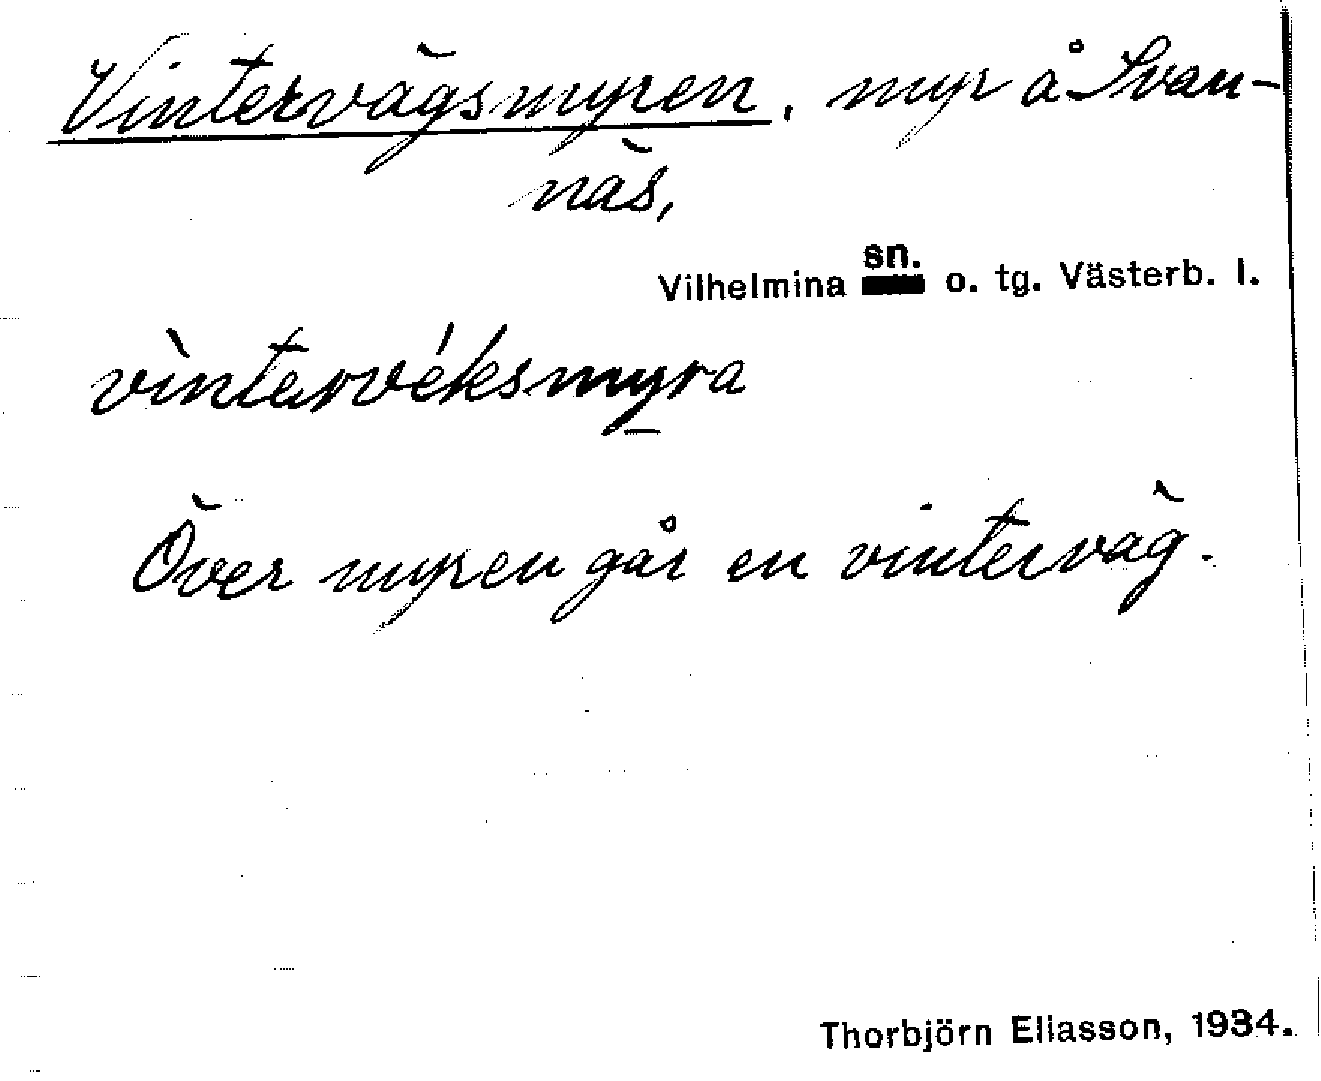 Vintervägsmyren, myr å Svan-
näs,
Vilhelmina sn. o. tg. Västerb. l.
vìntervéksmyra
Över myren går en vinterväg.
Thorbjörn Eliasson, 1934.